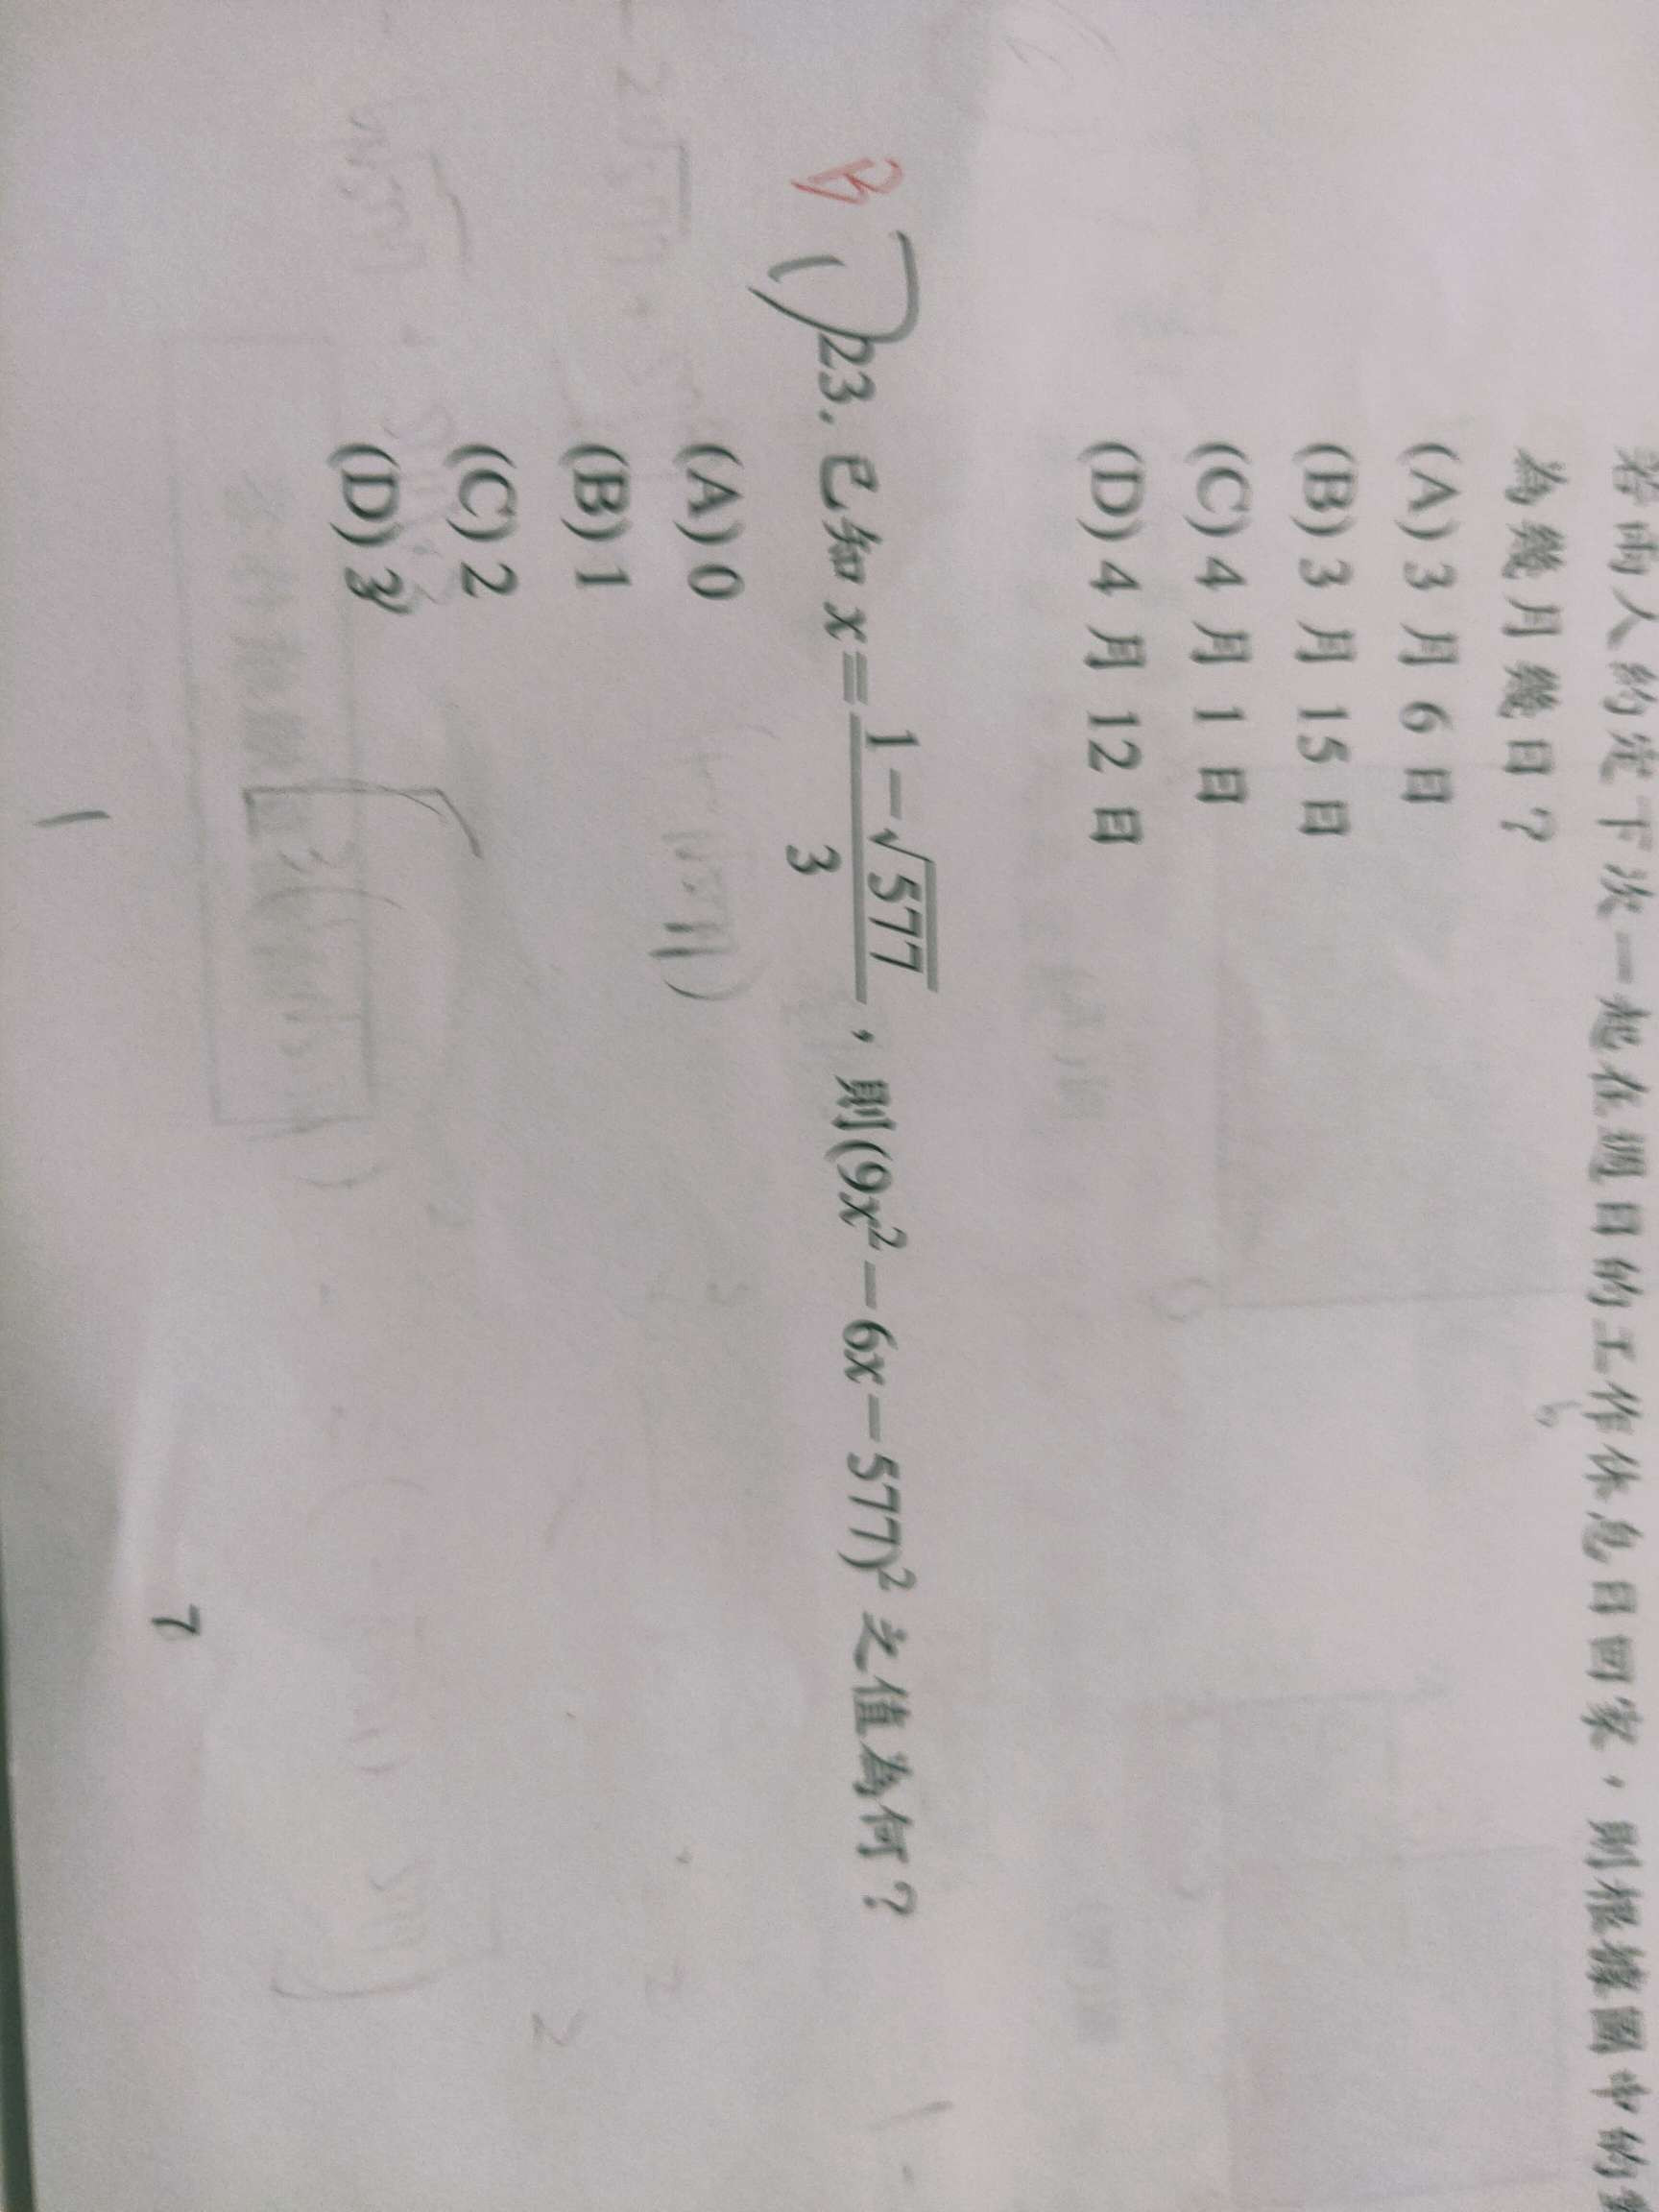 若兩人約定下次一起在週日的工作休息日回家,則根據圖中的
為幾月幾日?
(A) 3 月 6 日
(B) 3 月 15 日
(C) 4 月 1 日
(D) 4 月 12 日
B
23. 已知 x = (1 − √577)/3 ,則(9x² − 6x − 577)² 之值為何?
(A) 0
(B) 1
(C) 2
(D) 3
7